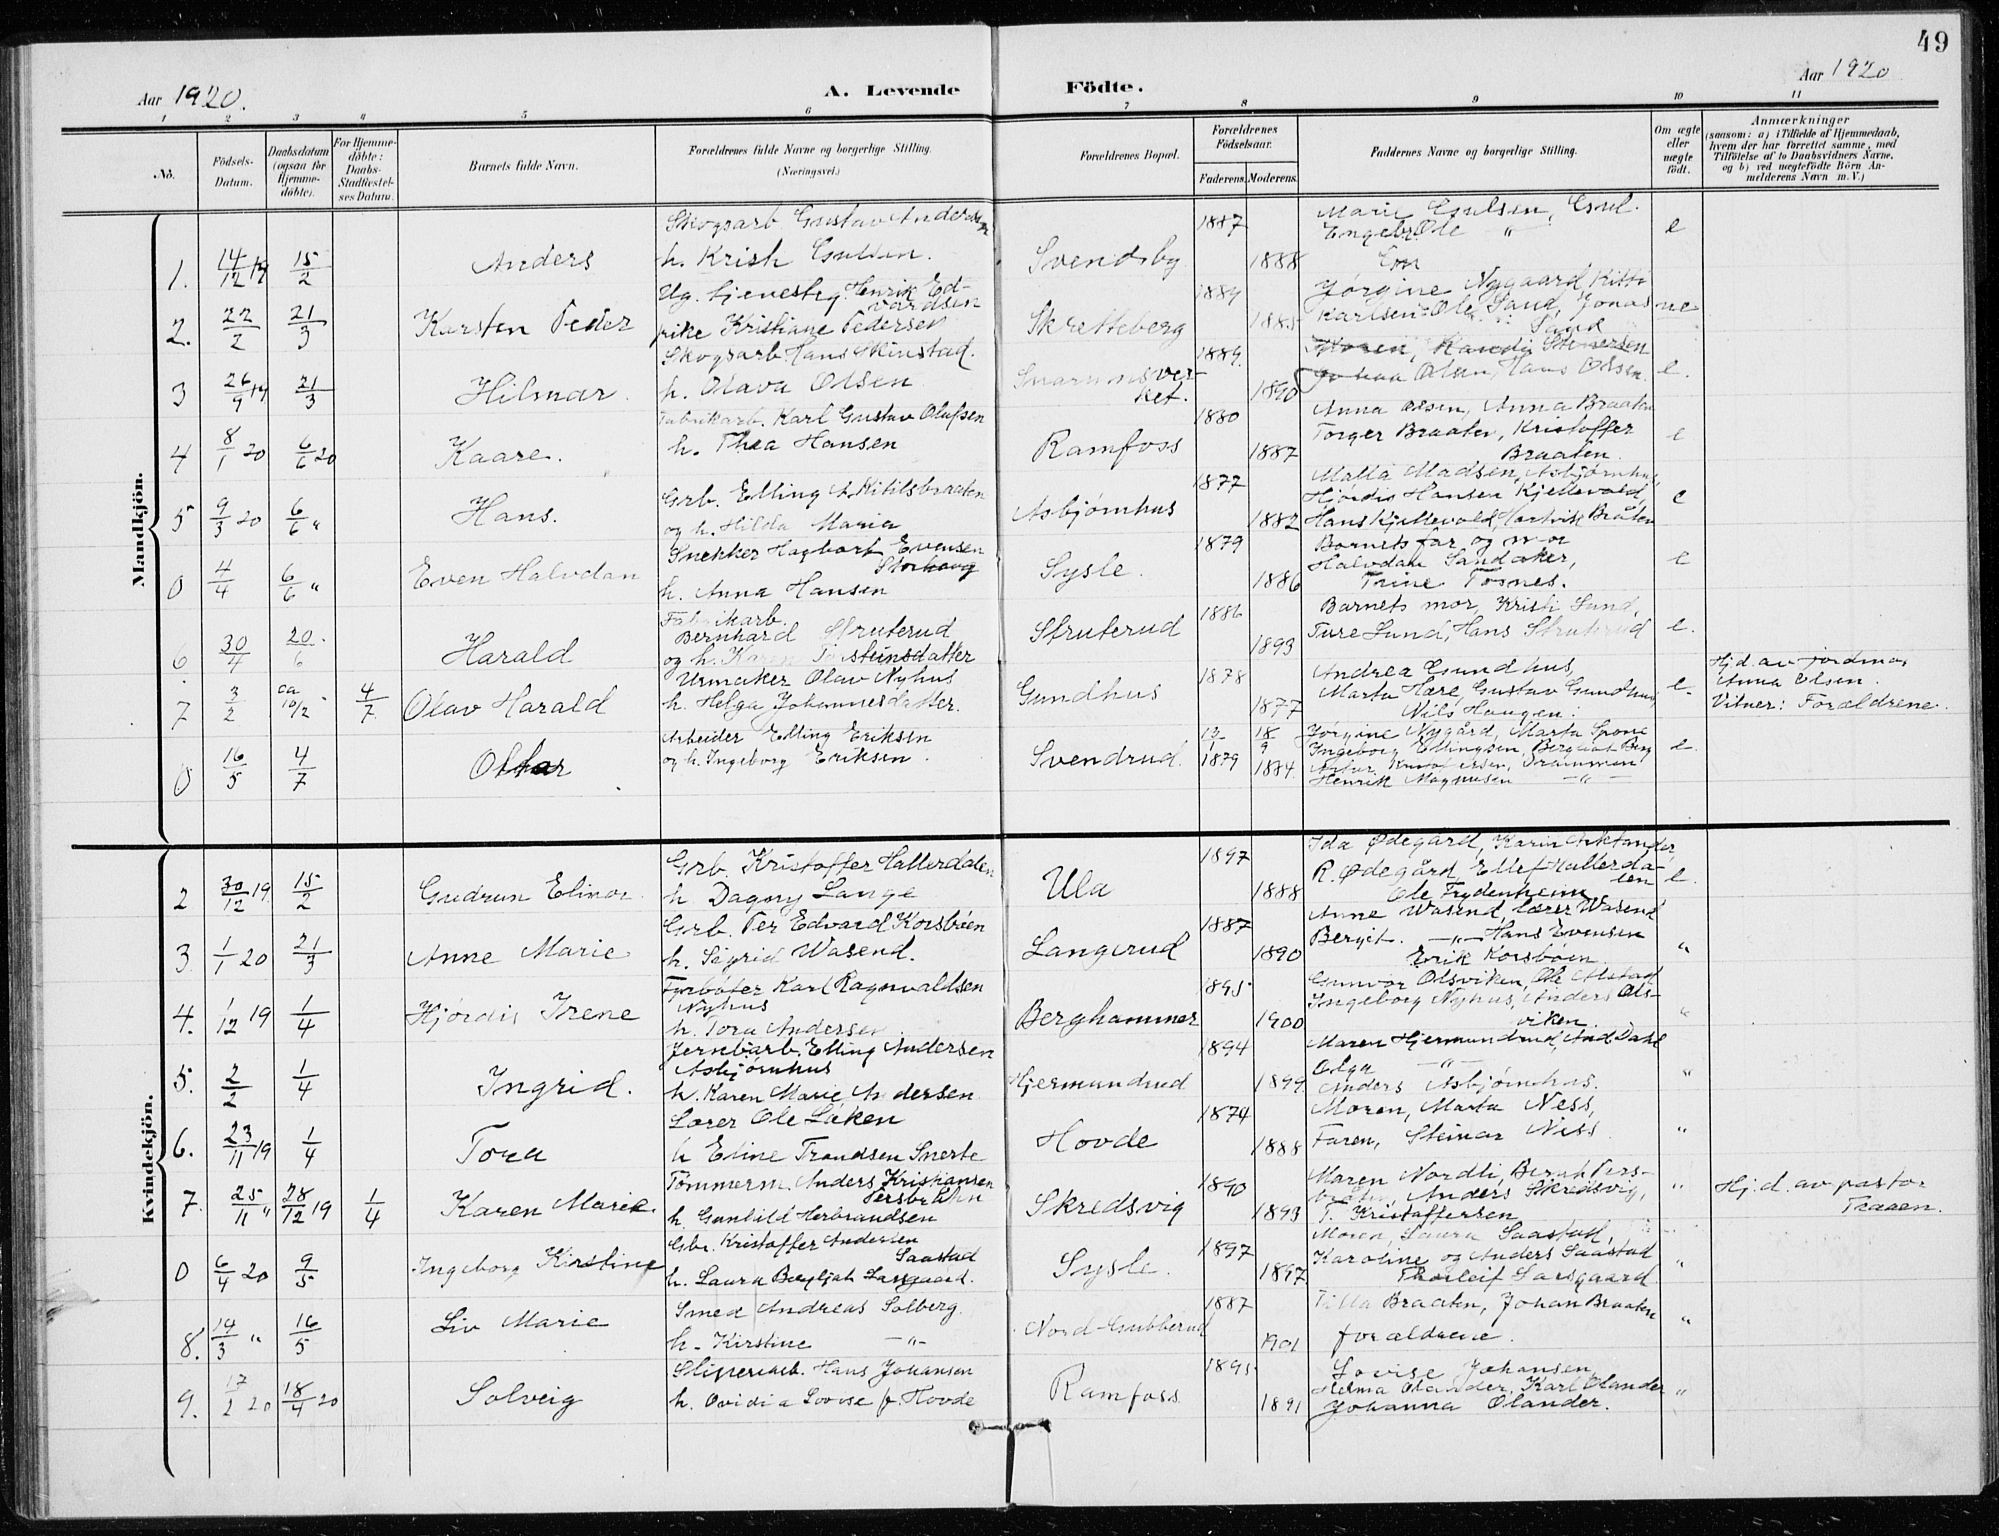 49
Aar 1920.
A. Levende Födte.
Aar 1920
1 2 3 4 5 6 7 8 9 10 11
No.
Födsels-Datum.
Daabsdatum (ogsaa for Hjemme-döbte).
For Hjemme-döbte: Daabs-Stadfæstel-ses Datum.
Barnets fulde Navn.
Forældrenes fulde Navne og borgerlige Stilling.
(Næringsvei.)
Forældrenes Bopæl.
Forældrenes Födselsaar.
Faderens. Moderens.
Faddernes Navne og borgerlige Stilling.
Om ægte eller uægte födt.
Anmærkninger
(saasom: a) i Tilfælde af Hjemmedaab,
hvem der har forrettet samme, med
Tilföielse af to Daabsvidners Navne,
og b) ved uægtefödte Börn An-
melderens Navn m. V.)
Mandkjön.
Skogsarb Gustav Andersen
1. 14/12 19 15/2 Anders h. Krish Gulsen. Svendsby 1887 1888 e
Marie Gulsen, Gul.
Engebr. Ole "
2. 22/2 21/3 Karsten Peder
Ug. tjenesteg. Henrik Ed-
vardsen
pike Kristiane Pedersen Skretteberg 1889 1885 ue
Jørgine Nygaard, Kitti
Karlsen, Ole Sand, Jonas
Sand
Skogsarb Hans Skinstad.
3 26/9 19 21/3 Hilmar. h. Olava Olsen Snarumsver-
ket. 1889. 1890 e.
Johan Olsen, Hans Olsen.
Fabrikarb. Karl Gustav Olufsen
4 8/1 20 6/6 20 Kaare. h. Thea Hansen Ramfoss 1880 1887 e
Anna Olsen, Anna Braaten
Torger Braaten, Kristoffer
Braaten.
Grb. Elling A. Kitilsbraaten
5 9/3 20 6/6 " Hans. og h. Hilda Maria Asbjørnhus 1877 1882 e
Malla Madsen, Asbjørnhus,
Hjørdis Hansen Kjellevold,
Hans Kjellevold, Hartvik Bråten
Snekker Hagbart Evensen
Storhaug
0 4/4 6/6 " Even Halvdan h. Anna Hansen Sysle. 1879 1886 e
Barnets far og mor
Halvdan Sandaker,
Trine Tosnes.
Fabrikarb.
Bernhard Struterud
6. 30/4 20/6 Harald og h. Karen Torsteinsdatter Struterud 1886 1893 e.
Barnets mor, Kristi Lund,
Ture Lund, Hans Struterud
Urmaker Olav Nyhus
7 3/2 ca 10/2 4/7 Olav Harald h. Helga Johannesdatter. Gundhus 1878 1877 e.
Andrea Gundhus,
Marta Hære, Gustav Gundhus,
Nils Haugen.
Hj.d. av jordmor
Anna Olsen.
Vitner: Forældrene.
Arbeider Elling Eriksen
0 16/5 4/7 Ottar og h. Ingeborg Eriksen. Svendrud. 12/1 1879 18/9 1884 e.
Jørgine Nygård, Marta Spone
Ingeborg Ellingsen, Bergliot Berg
Drammen
Henrik Magnusen — " —
Kvindekjön.
Grb. Kristoffer Hallerdalen
2 30/12 19 15/2 Gudrun Elinor h Dagny Lange Ula 1897 1888 e.
Ida Ødegård, Karin Anktander,
R. Ødegård, Ellef Hallerda-
len
Ole Frydenheim
Grb. Per Edvard Korsbøen
3. 1/1 20 21/3 Anne Marie h. Sigrid Wasend. Langerud 1887 1890 "
Anne Wasend, lærer Wasend
Bergit. —"— Hans Evensen
Erik Korsbøen.
Fyrbøter Karl Ragnvaldsen
Nyhus
4. 1/12 19 1/4 Hjørdis Irene h. Tora Andersen. Berghammer 1895 1900 "
Gunvor Olsviken, Ole Alstad
Ingeborg Nyhus, Anders Ols-
viken
Jernbarb. Elling Andersen
Asbjørnhus
5. 2/2 1/4 Ingrid. h. Karen Marie Andersen. Hjermundrud 1894 1899 "
Maren Hjermundrud, And. Dahl
Olga —"—
Anders Asbjørnhus.
Lærer Ole Laken
6. 23/11 19 1/4 Tora h Eline Trondsen Snerte Hovde 1874 1888 "
Moren, Marta Ness,
Faren, Steinar Ness
Tömmerm. Anders Kristiansen
Persbråtan
7. 25/11 " 28/12 19 1/4 Karen Marie. h. Gunhild Herbrandsen Skredsvig 1890 1893 "
Maren Nordli, Bernt Pers-
bråten, Anders Skredsvig,
T. Kristoffersen
Hj.d. av pastor
Traaen.
Gbr. Kristoffer Andersen
Saastad
0 6/4 20 9/5 Ingeborg Kirstine h. Laura Bergljot Larsgaard. Sysle. 1897 1897 "
Moren, Laura Saastad,
Karoline og Anders Saastad
Thorleif Larsgaard
Smed Andreas Solberg.
8. 14/3 " 16/5 Liv Marie h. Kirstine —"— Nord-Gubberud 1887 1901 "
Tilla Braaten, Johan Braaten
forældrene.
Sliperiarb. Hans Johansen
9. 17/2 20 18/4 20 Solveig h. Ovidia Lovise f. Hovde Ramfoss 1895 1891 "
Lovise Johansen
Helma Olander, Karl Olander
Johanna Olander.